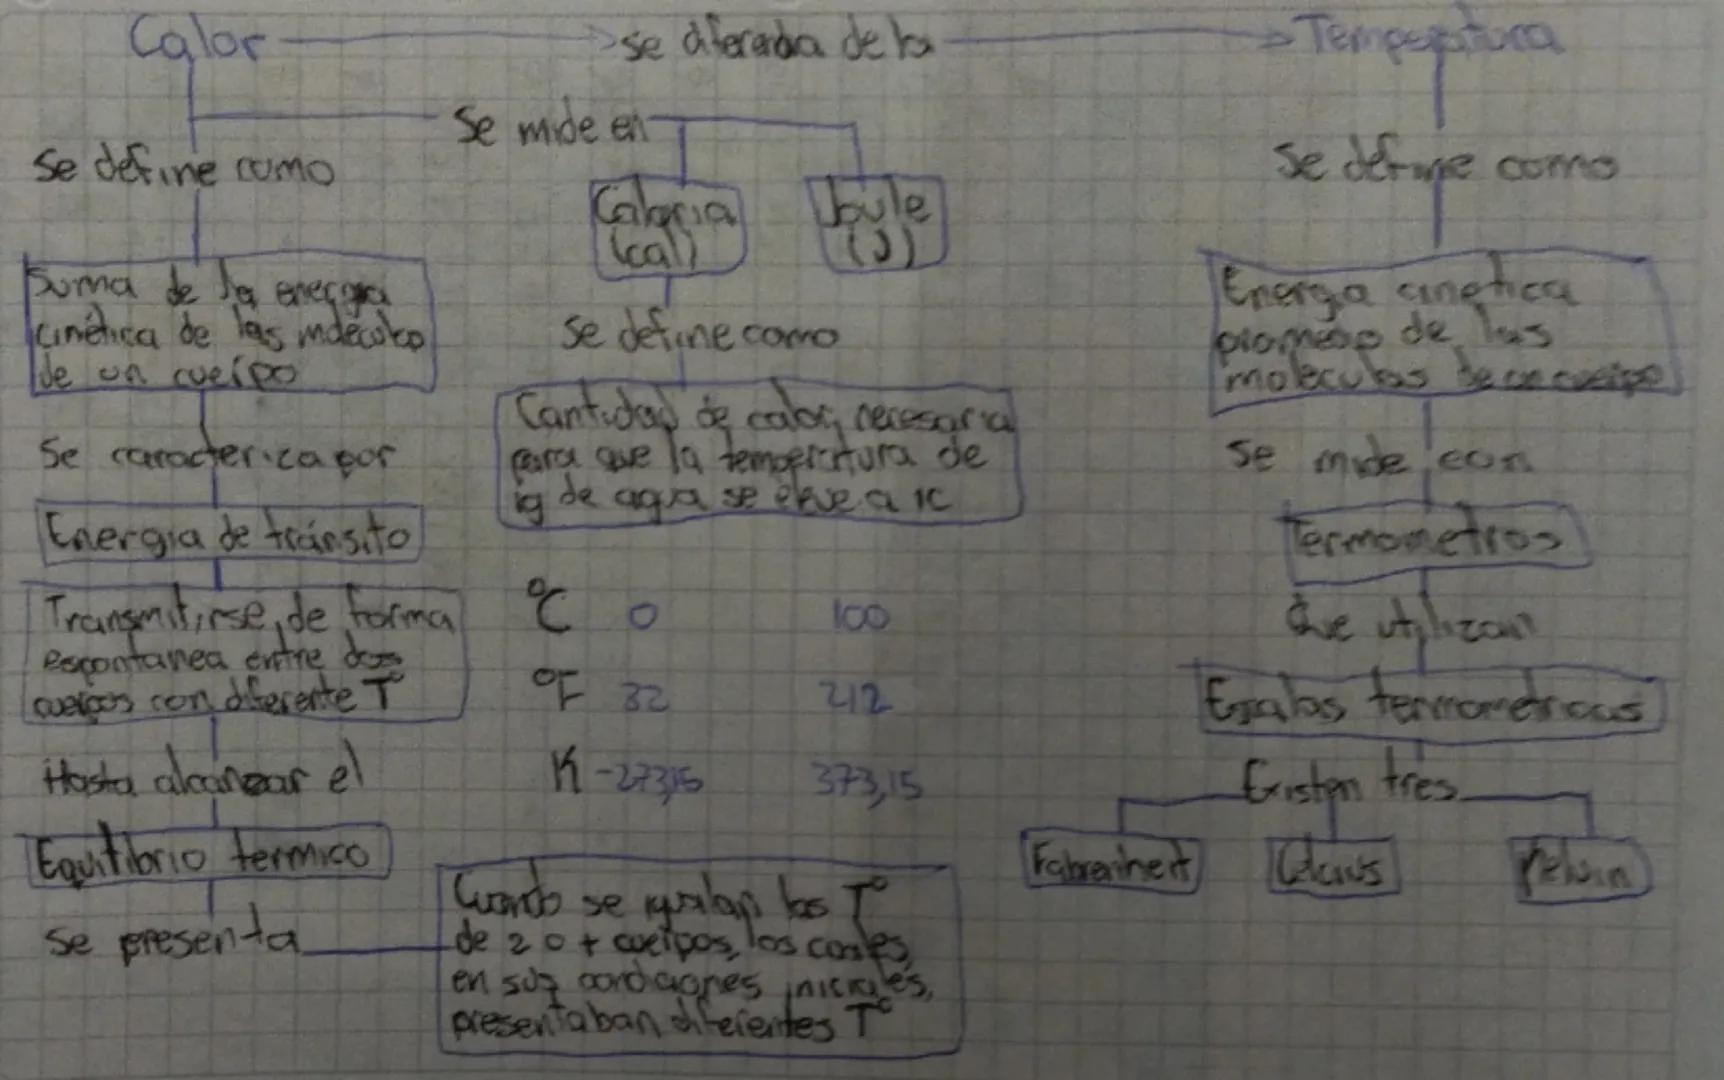 Calor se diferencia de la Temperatura
Se mide en
Se define como
Se define como
Caloria
(cal)
Joule
(J)
Suma de la energia
cinética de las moleculas
de un cuerpo
Se define como
Energia cinetica
promedio de las
moleculas de un cuerpo
Se caracteriza por
Cantidad de calor necesaria
para que la temperatura de
1g de agua se eleve a 1C
Se mide con
Energia de tránsito
Termometros
Transmitirse de forma
espontanea entre dos
cuerpos con diferente T°
°C 0 100
°F 32 212
K -273,15 373,15
Que utilizan
Escalas termometricas
Hasta alcanzar el
Existen tres
Equilibrio termico
Fahrenheit Celcius Kelvin
Se presenta
Cuando se igualan las T°
de 2 o + cuerpos, los cuales,
en sus condiciones iniciales,
presentaban diferentes T°